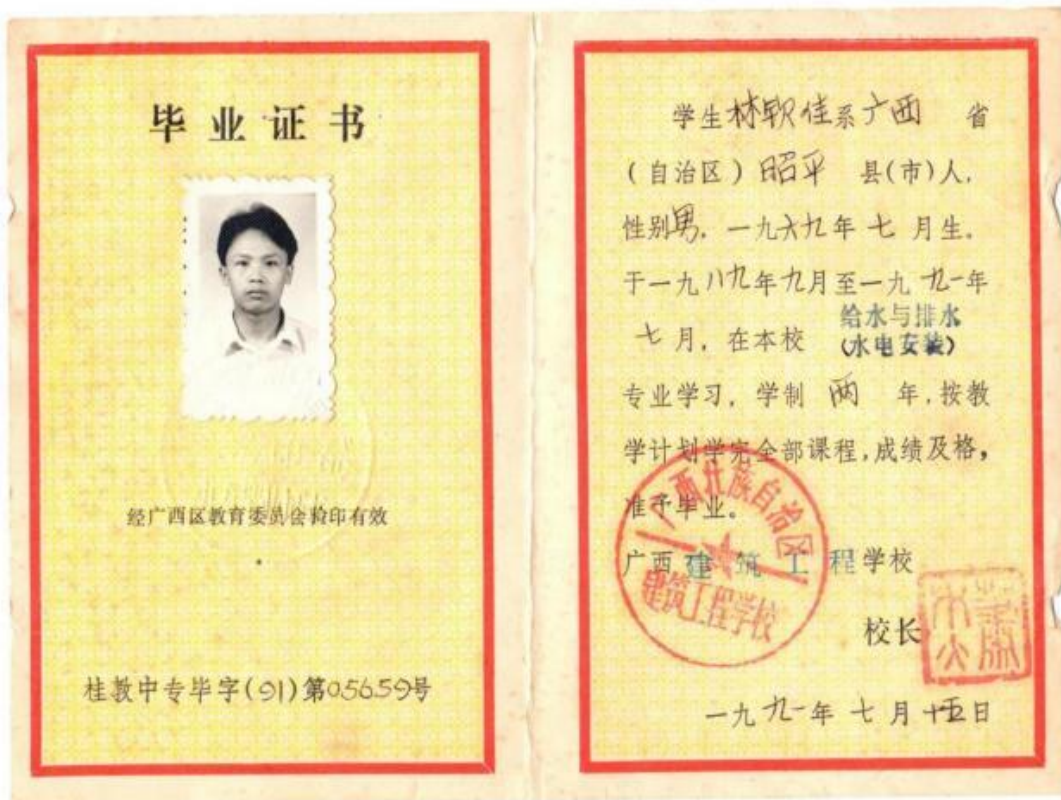 毕业证书
经广西区教育委员会验印有效
桂教中专毕字(91)第05659号
学生林软佳系广西 省
(自治区)昭平 县(市)人,
性别男,一九六九年七月生。
于一九八九年九月至一九九一年
七月,在本校 给水与排水
(水电安装)
专业学习,学制 两 年,按教
学计划学完全部课程,成绩及格,
准予毕业。
广西建筑工程学校
校长
一九九一年七月十五日
广西壮族自治区
建筑工程学校